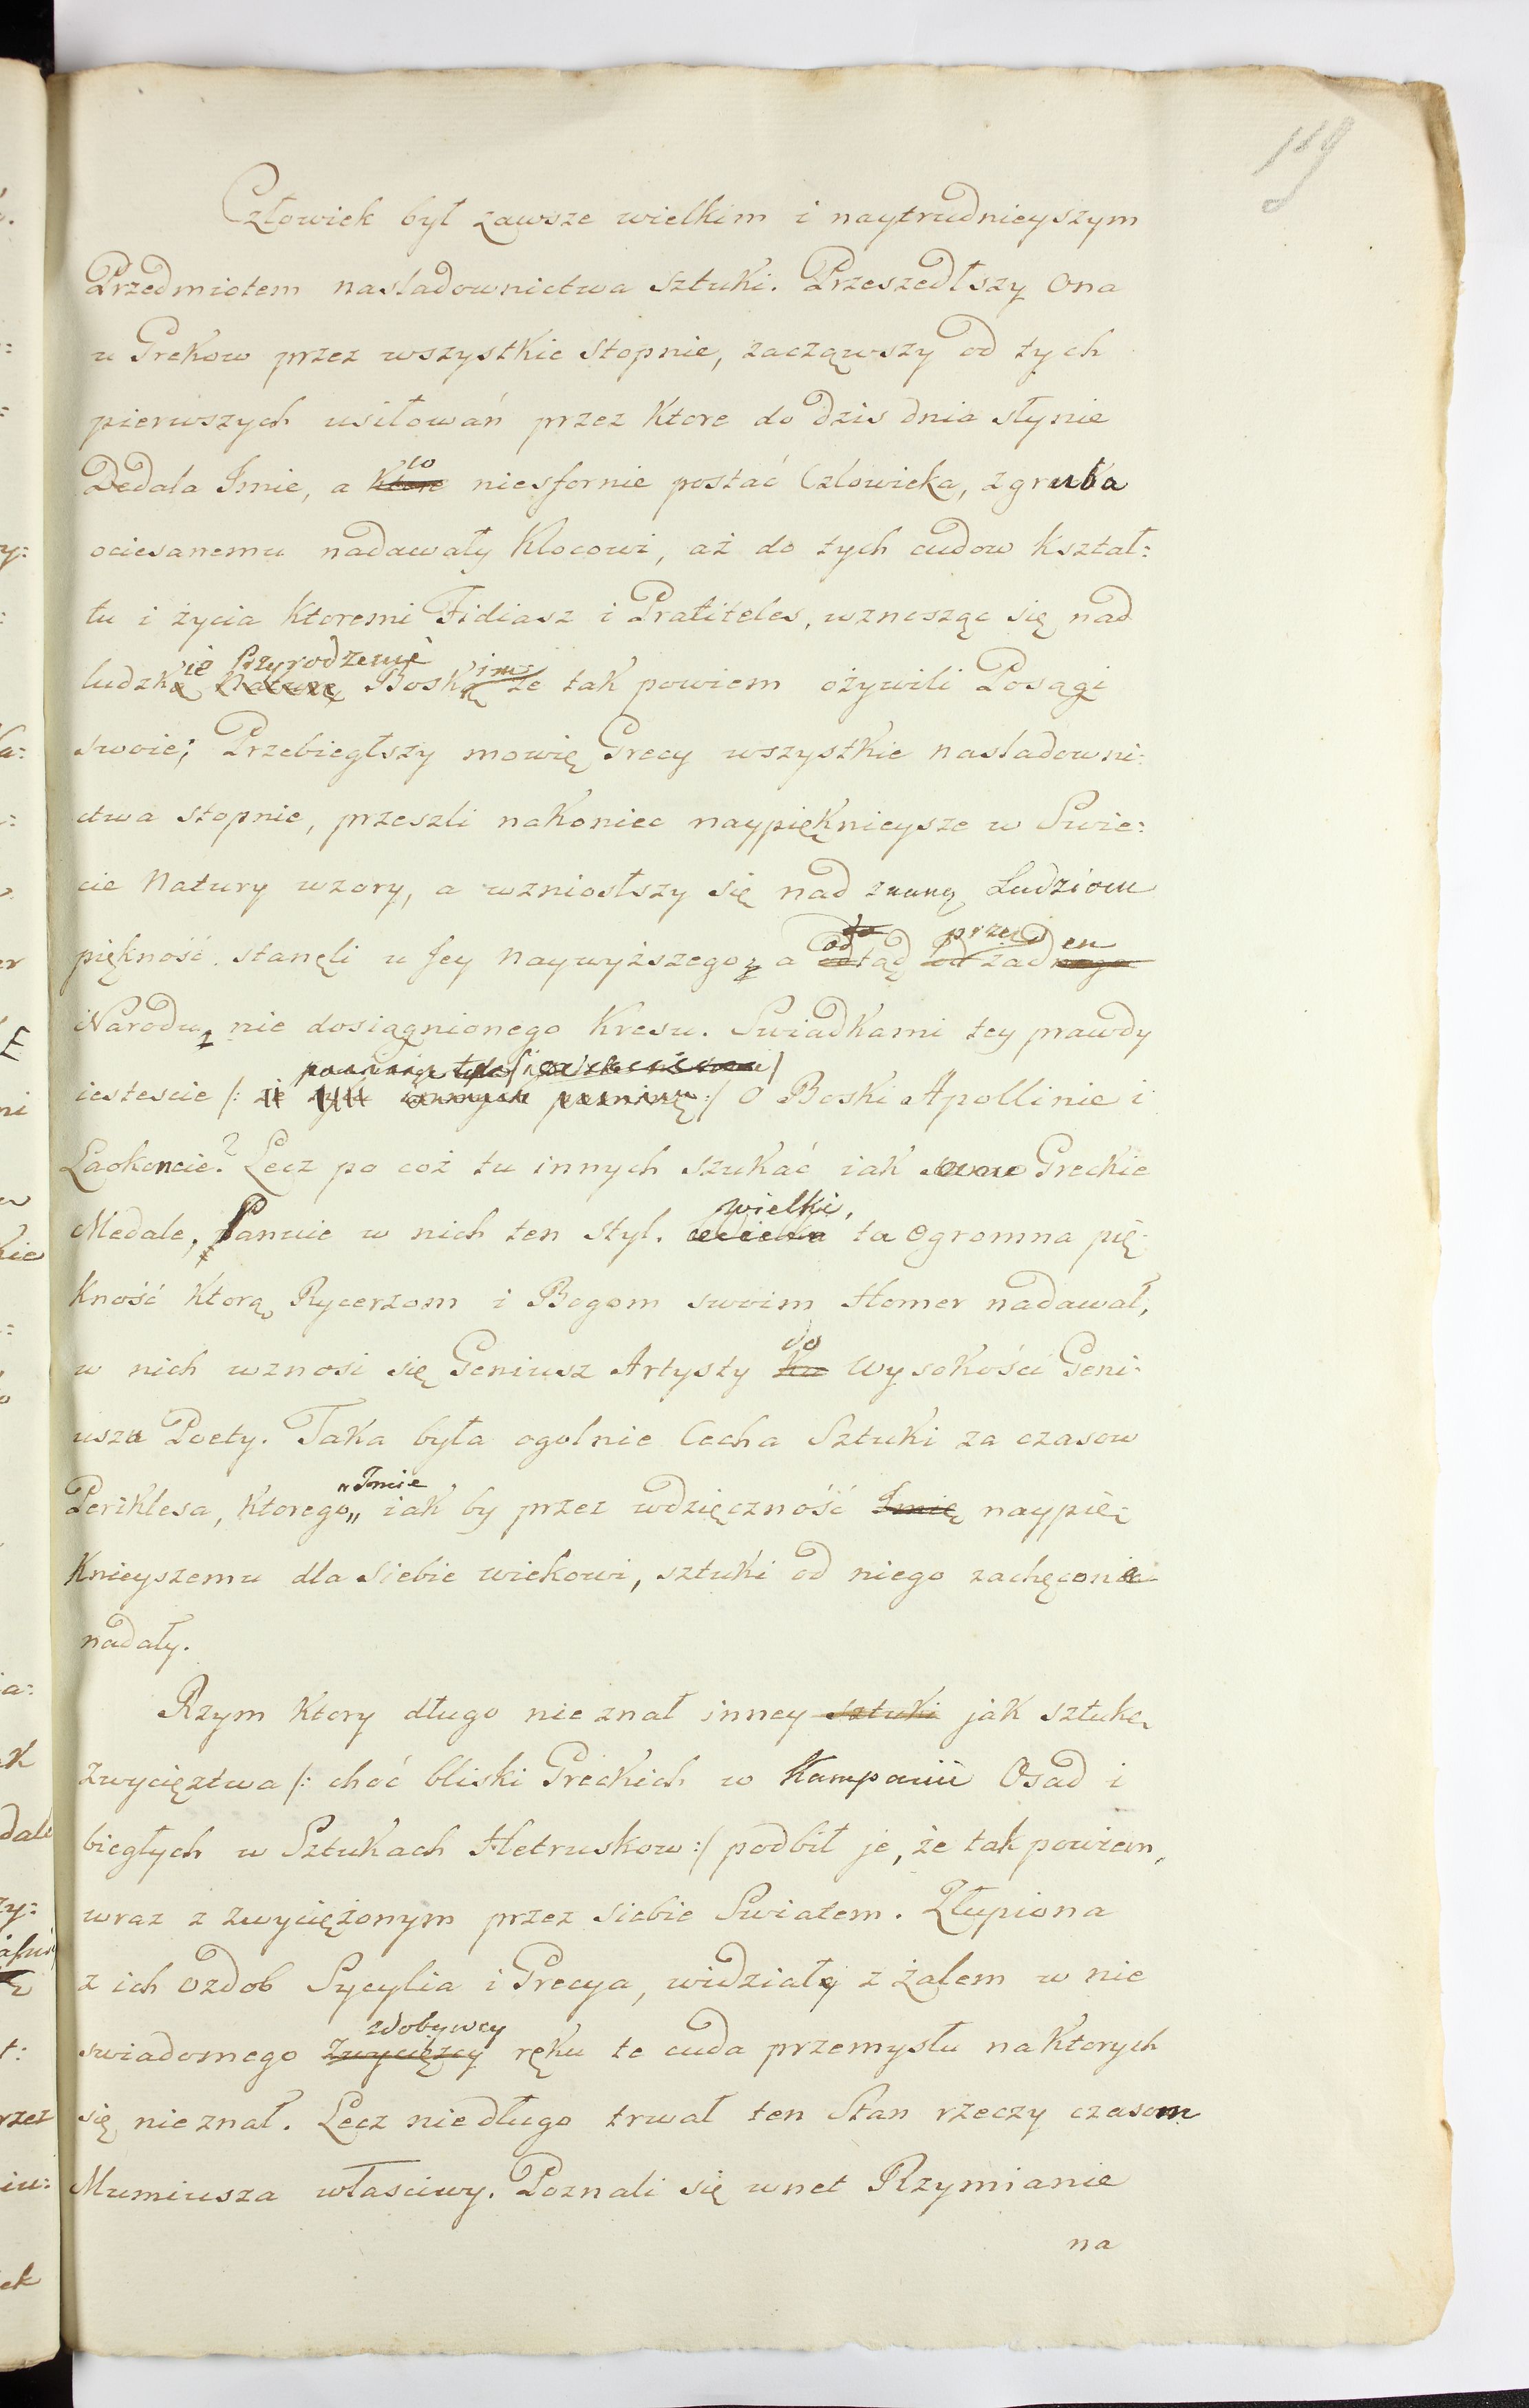 119
Człowiek był zawsze wielkim i naytrudnieyszym
Przedmiotem nasladownictwa sztuki. Przeszedłszy Ona
u Grekow przez wszystkie stopnie, zacząwszy od tych
pierwszych usiłowań przez Ktore do dzis dnia słynie
co
Dedala Imie, a Ktore niesfornie postać Człowieka, z gruba
ociesanemu nadawały Klocowi, aż do tych cudow Kształ:
tu i życia Ktoremi Fidiasz i Praxiteles, wznosząc się nad
ie Przyrodzenie im
ludzką Naturę Boską że tak powiem ożywili Posągi
swoie; Przebiegłszy mowię Grecy wszystkie nasladowni:
ctwa stopnie, przeszli nakoniec naypięknieysze w Swie:
cie Natury wzory, a wzniosłszy się nad znaną Ludziom
od przez en
piękność stanęli u Jey naywyższego, a odtąd od żadnego
Narodu, nie dosiągnionego Kresu. Swiadkami tey prawdy
pominę tylu
iestescie /: że tylu innych pominę :/ O Boski Apollinie i
Laokoncie? Lecz po coż tu innych szukać iak same Greckie
wielki,
Medale, Panuie w nich ten styl. wielka ta Ogromna pię:
Kność Ktorą Rycerzom i Bogom swoim Homer nadawał,
do
w nich wznosi się Geniusz Artysty Ku Wysokości Geni:
uszu Poety. Taka była ogolnie Cecha Sztuki za czasow
"Imie
Periklesa, Ktorego,, iak by przez wdzięczność Imię naypię:
Knieyszemu dla siebie wiekowi, sztuki od niego zachęcone
nadały.
Rzym Ktory długo nie znał inney sztuki jak sztukę
Zwycięztwa /: choć bliski Greckich w Kampanii Osad i
biegłych w Sztukach Hetruskow :/ podbił je, że tak powiem,
wraz z zwyciężonym przez siebie Swiatem. Złupiona
z ich ozdob Sycylia i Grecya, widziały z żalem w nie
zdobywcy
swiadomego Zwycięzcy ręku te cuda przemysłu na Ktorych
się nie znał. Lecz nie długo trwał ten Stan rzeczy czasom
Mumiusza własciwy. Poznali się wnet Rzymianie
na